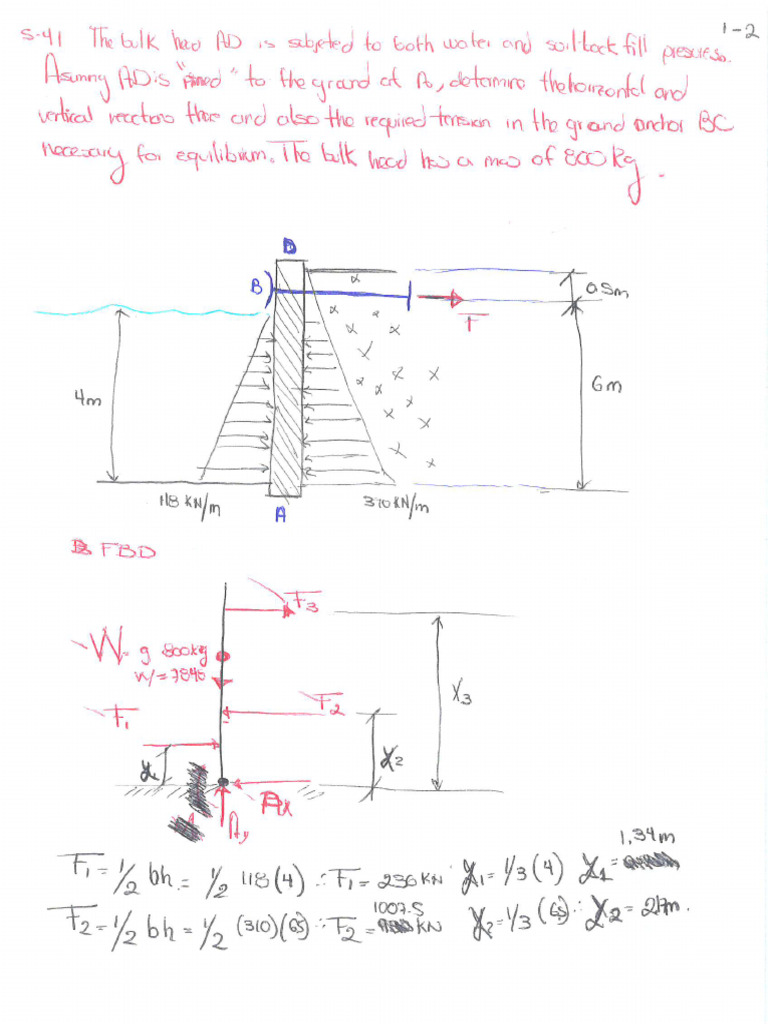 1-2
5-41 The bulk head AD is subjeted to both water and soil-back fill presures.
Asumng AD is "pinned" to the ground at A, determine the horizontal and
vertical reactions there and also the required tension in the ground anchor BC
necessary for equilibrium. The bulk head has a mas of 800 kg.
D
B
α
0.5m
F
4m
6m
118 KN/m
310 KN/m
A
FBD
F3
W= g 800kg
W=7848
F2
F1
X3
X2
X1
Ax
Ay
1,34m
F1 = 1/2 bh = 1/2 118 (4) ∴ F1 = 236 KN X1 = 1/3 (4) X1 =
1007.5
F2 = 1/2 bh = 1/2 (310)(6.5) ∴ F2 = KN X2 = 1/3 (6.5) ∴ X2 = 2.17m.